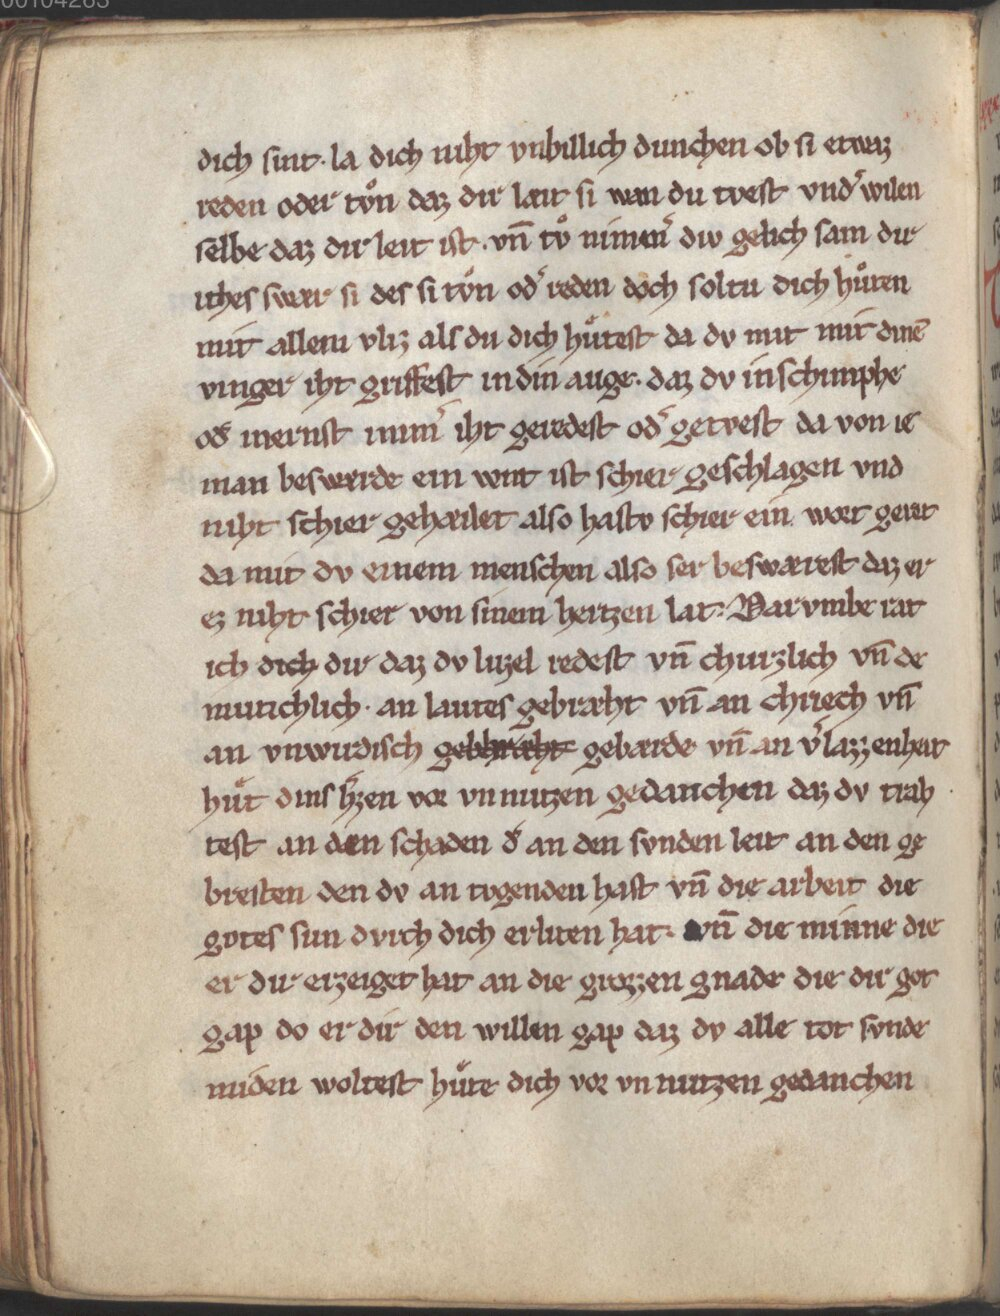 00104283
dich sint · la dich niht vnbillich dunchen ob si etwaz
reden oder tvͦn daz dir lait si wan du tvest vnd͛ wilen
selbe daz dir leit ist · vn̄ tvͦ nimen͛ div gelich sam dir
ihtes swær si des si tvͦn od͛ reden doch soltu dich hvͤten
mit allem vliz als du dich hvͤtest da dv mit mit dinē
vinger iht griffest in din auge · daz dv in schimphe
od͛ in ernst nim͛ iht geredest od͛ getvest da von ie
man beswerde ein wnt ist schier geschlagen vnd
niht schier gehæilet also hastv schier ein wort geret
da mit dv einem menschen also ser beswærest daz er
ez niht schier von sinem hertzen lat · Darvmbe rat
ich dich dir daz dv luzel redest vn̄ churzlich vn̄ de
mutichlich · an lautes gebræht vn̄ an chriech vn̄
an vnwirdisch gebhræht gebærde vn̄ an v͛lazzenheit
hvͤt dins h͛zen vor vnnutzen gedanchen daz dv trah
test an den schaden d͛ an den svnden leit an den ge
bresten den dv an tvgenden hast vn̄ die arbeit die
gotes sun dvrch dich erliten hat · vn̄ die minne die
er dir erzeiget hat an die grozzen gnade die dir got
gap do er dir den willen gap daz dv alle tot svnde
miden woltest hvͤte dich vor vnnutzen gedanchen